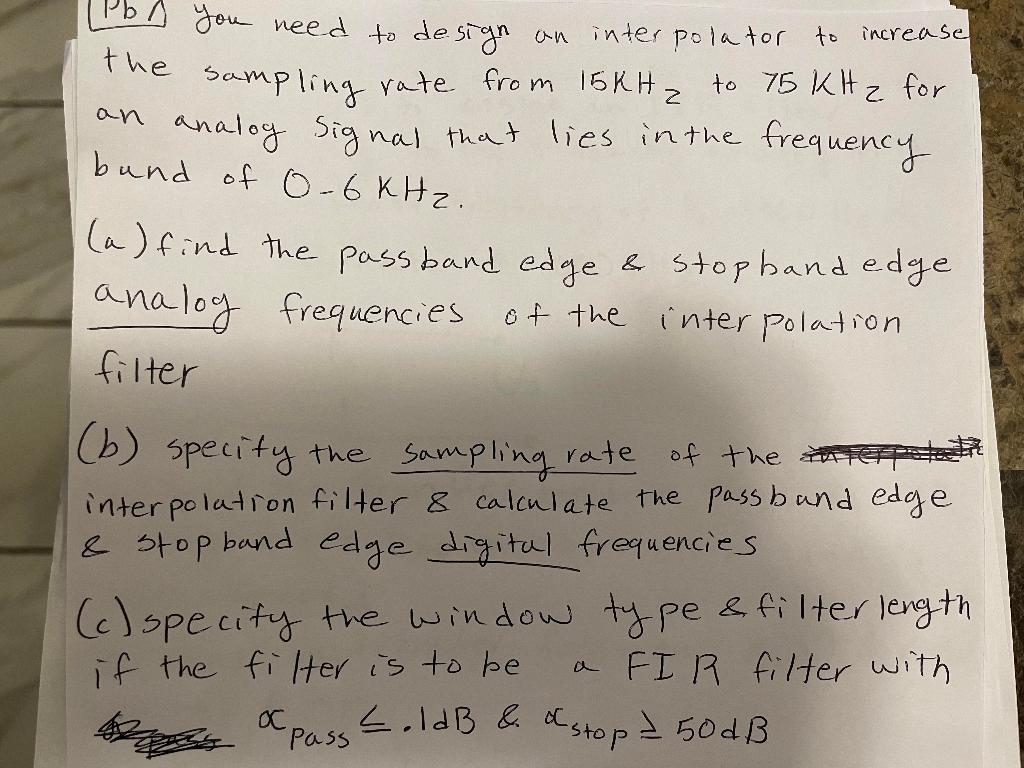 Pb 1 You need to design an interpolator to increase
the sampling rate from 15KHz to 75 KHz for
an analog signal that lies in the frequency
band of 0-6 KHz.
(a) find the passband edge & stopband edge
analog frequencies of the interpolation
filter
(b) specify the sampling rate of the
interpolation filter & calculate the passband edge
& stopband edge digital frequencies
(c) specify the window type & filter length
if the filter is to be a FIR filter with
αpass ≤ .1dB & αstop ≥ 50dB